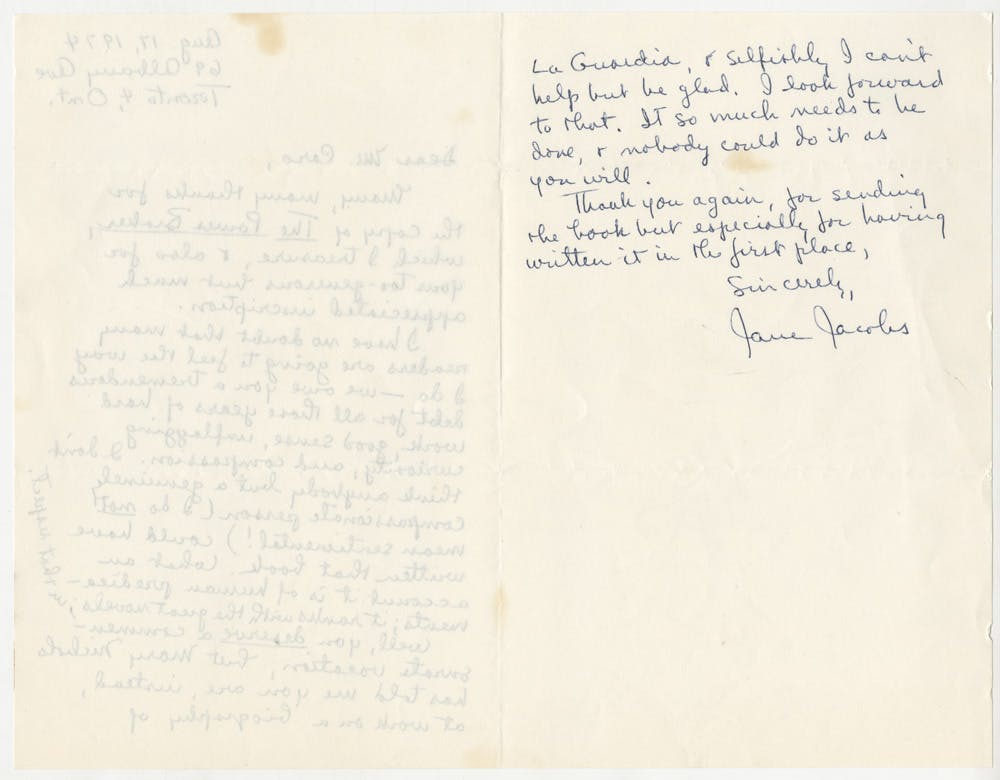 Aug. 17, 1974
69 Albany Ave
Toronto 4, Ont.
Dear Mr. Caro,
Many, many thanks for
the copy of The Power Broker,
which I treasure, & also for
your too-generous but much
appreciated inscription.
I have no doubt that many
readers are going to feel the way
I do — we owe you a tremendous
debt for all those years of hard
work, good sense, unflagging
curiosity, and compassion. I don't
think anybody but a genuinely
compassionate person (I do not
mean sentimental!) could have
written that book. What an
account it is of human predica-
ments; it ranks with the great novels,
in that respect.
Well, you deserve a commen-
surate vacation, but Mary Nichols
has told me you are, instead,
at work on a biography of
La Guardia, & selfishly I can't
help but be glad. I look forward
to that. It so much needs to be
done, & nobody could do it as
you will.
Thank you again, for sending
the book but especially for having
written it in the first place,
Sincerely,
Jane Jacobs